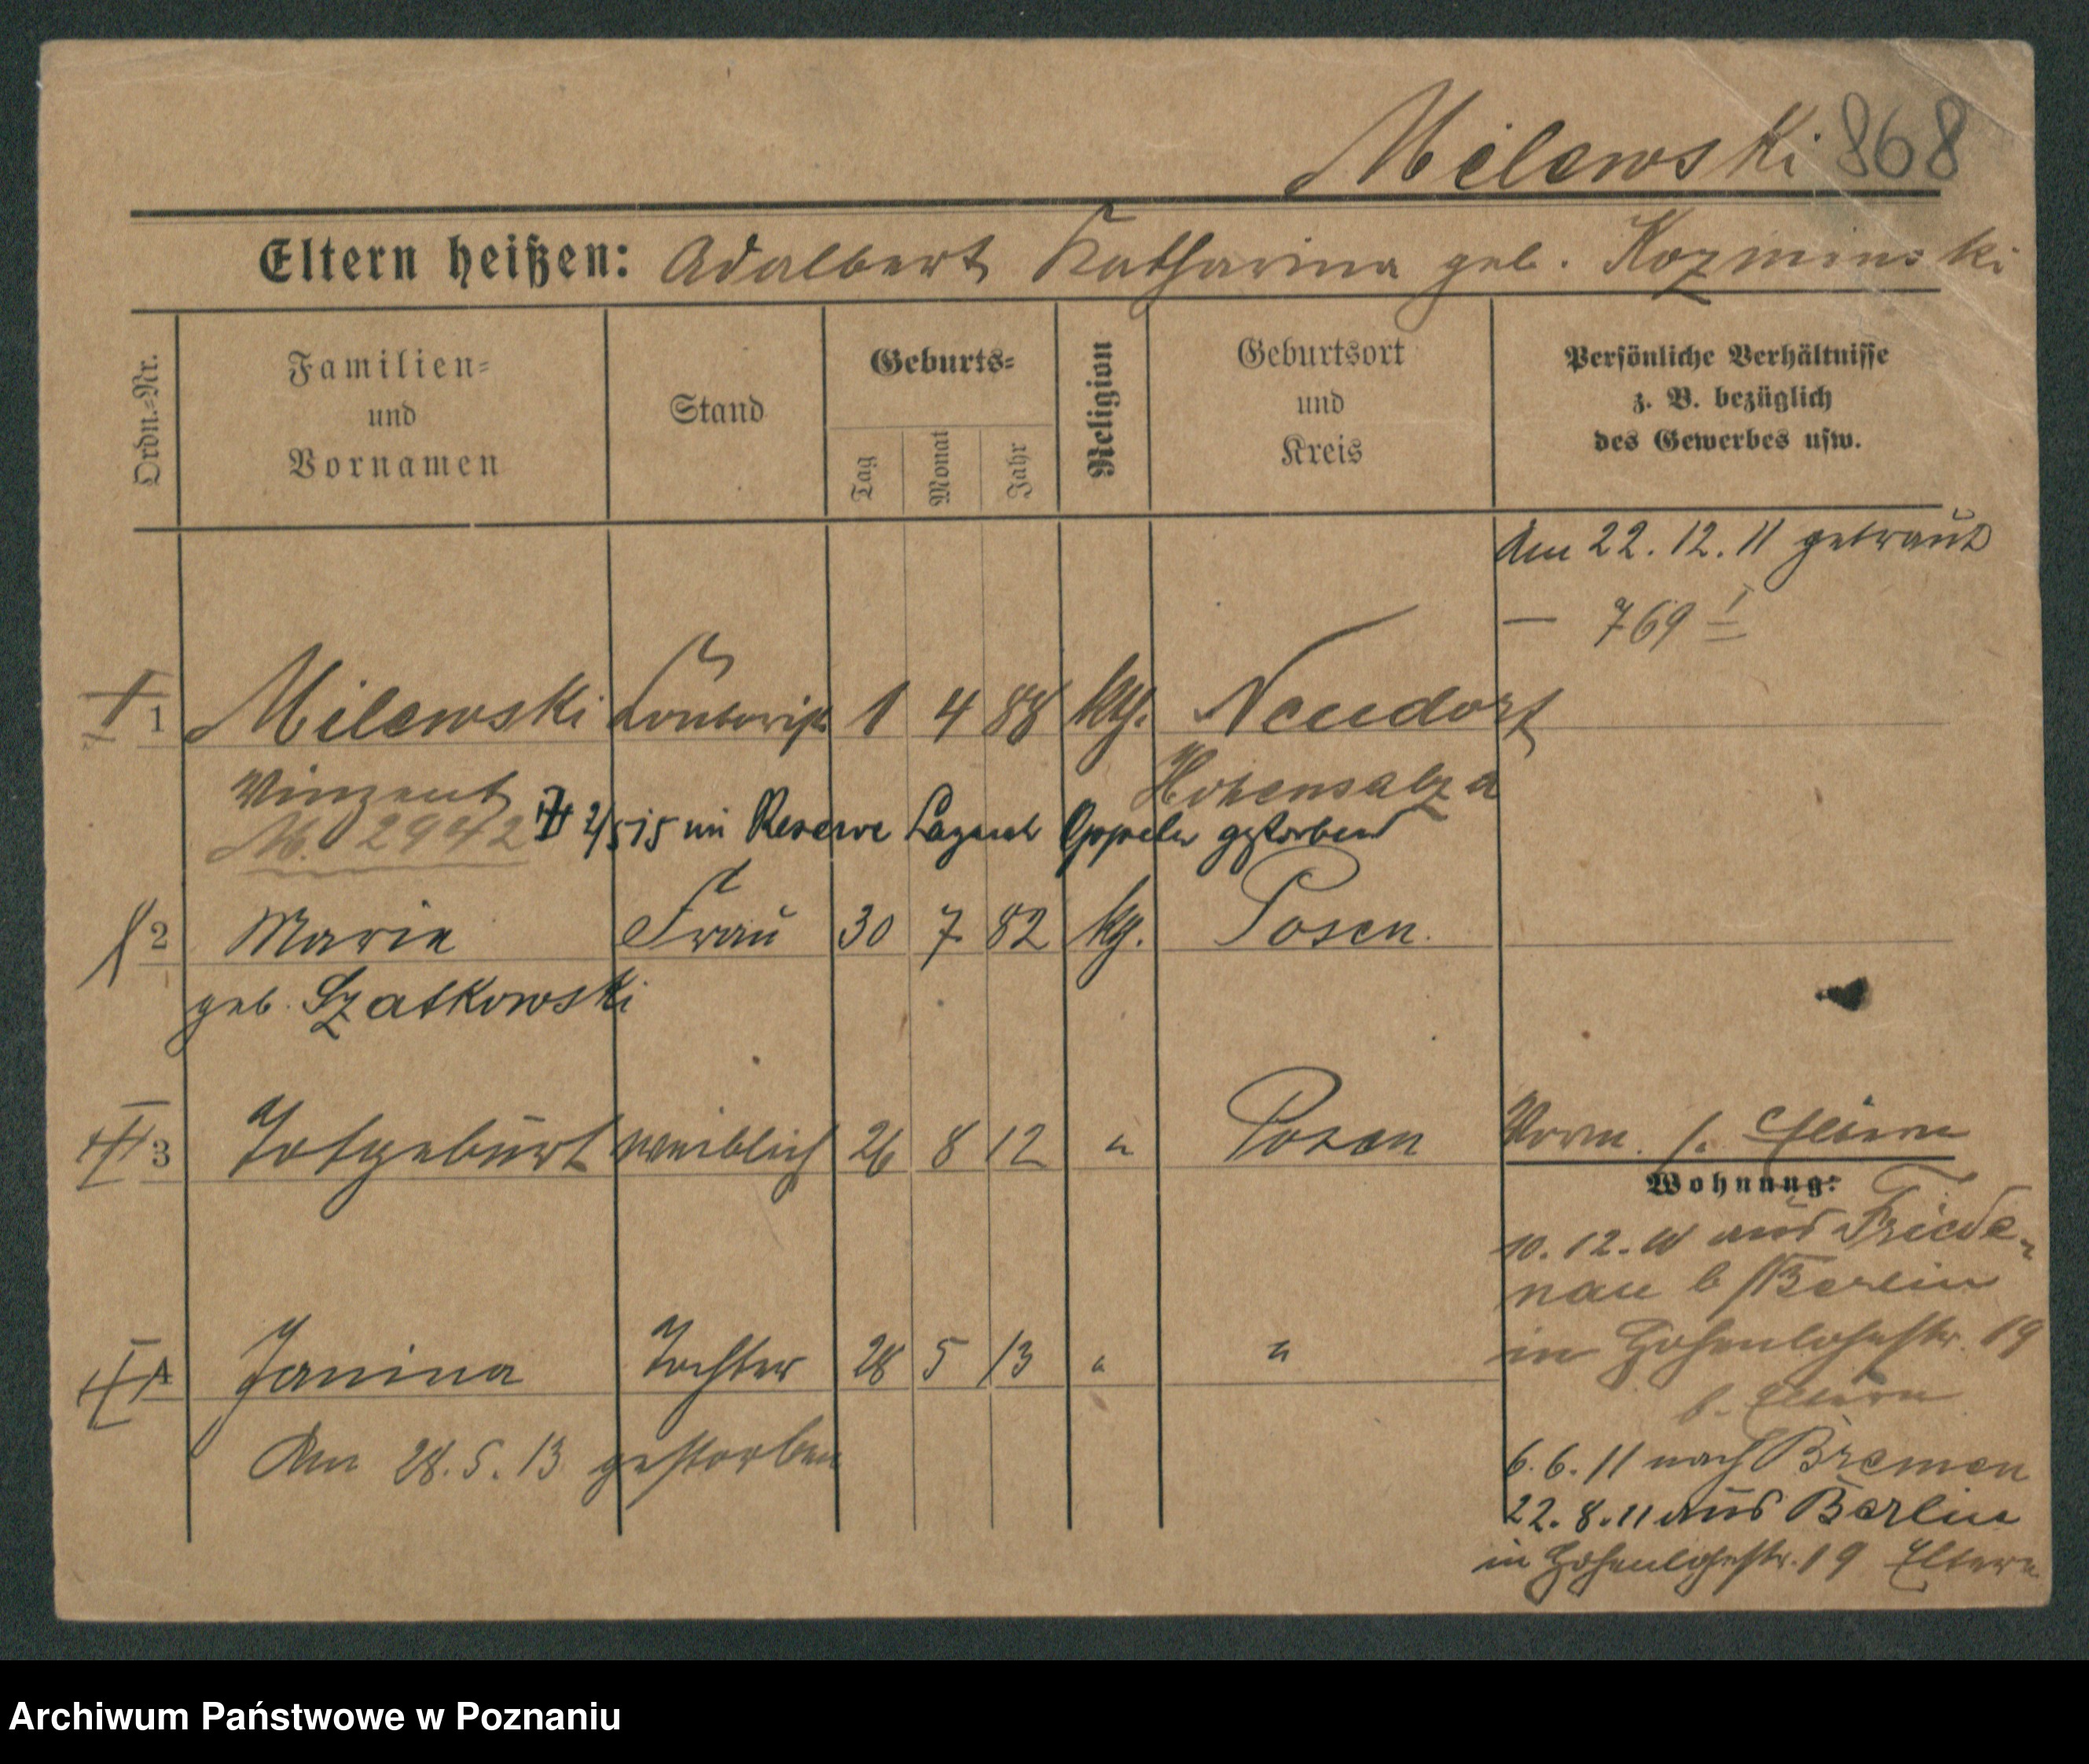 Milewski 868
Eltern heißen: Adalbert Katharina geb. Kozminski
Ordn.=Nr.
Familien=
und
Vornamen
Stand
Geburts=
Tag
Monat
Jahr
Religion
Geburtsort
und
Kreis
Persönliche Verhältnisse
z. B. bezüglich
des Gewerbes usw.
Am 22.12.11 getraut
— 769 I
1 Milewski 1 4 88 kth. Neudorf
Vinzent Hohensalza
M. 2942 2/5 15 im Reserve Lazarett Oppeln gestorben
2 Marie Frau 30 7 82 kth. Posen.
geb. Szatkowski
3 Totgeburt weiblich 26 8 12 " Posen
Worm. b. Eltern
Wohnung:
10.12.10 aus Friede-
nau b/Berlin
in Hohenlohestr. 19
b. Eltern
4 Janina Tochter 28 5 13 " "
Am 28.5.13 gestorben
6.6.11 nach Bremen
22.8.11 aus Berlin
in Hohenlohestr. 19 Eltern
Archiwum Państwowe w Poznaniu